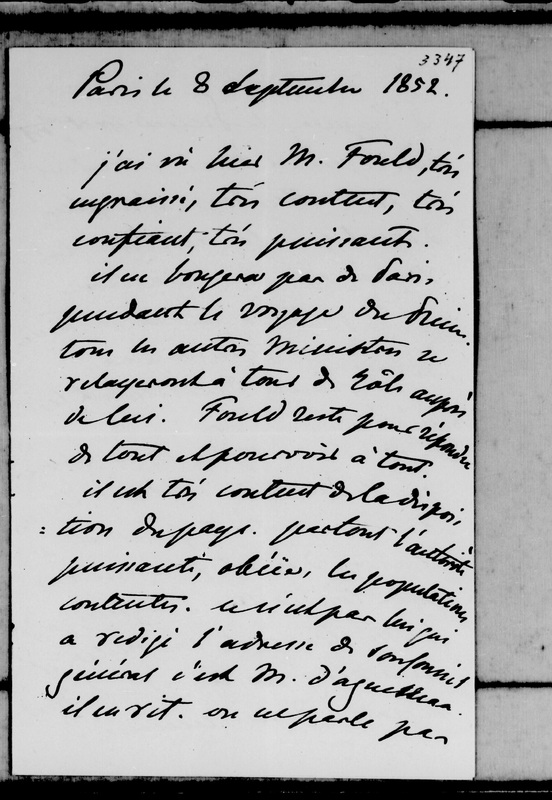 3347
Paris le 8 Septembre 1852.
j'ai vu hier M. Fould, très
engraissé, très content, très
confiant, très puissant.
il ne bougera pas de Paris
pendant le voyage du Prince.
tous les autres Ministres se
relayeront à tour de rôle auprès
de lui. Fould reste pour répondre
de tout et pourvoir à tout.
il est très content de la disposi
=tion du pays. partout l'autorité
puissante, obéïe, les populations
contentes. ce n'est pas lui qui
a redigé l'adresse de son Conseil
général c'est M. d'aguesseau.
il en rit. on ne parle pas